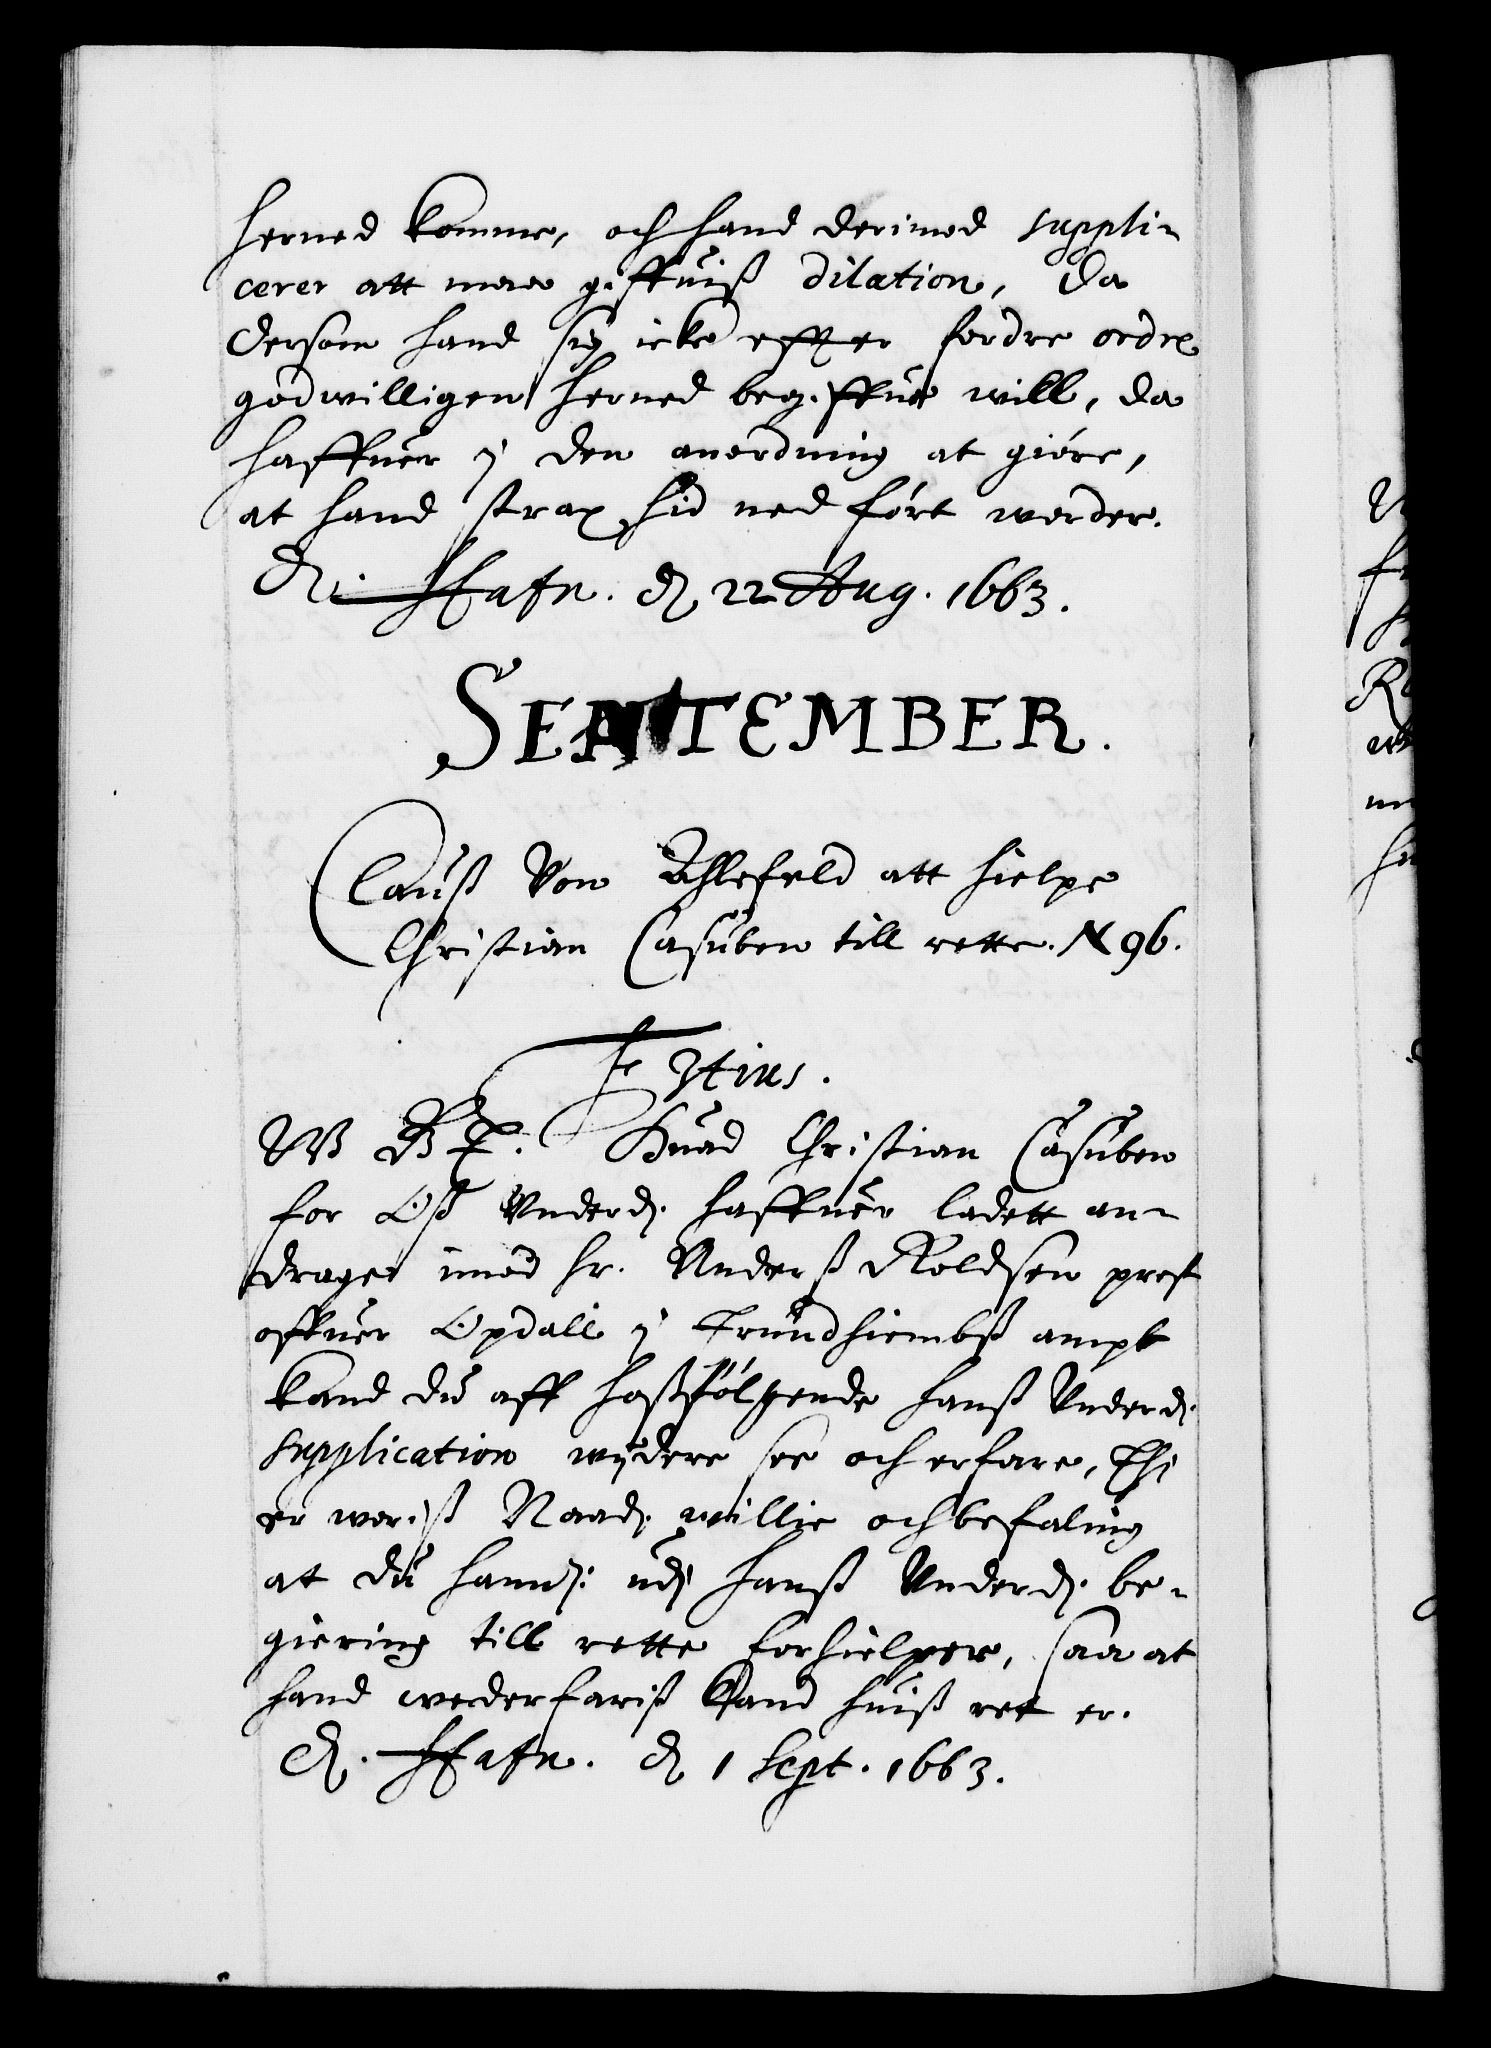 herned komme, och hand derimod suppli-
cerer att maa giffuis dilation, da
dersom hand sig icke effter fordre ordre
godwilligen herned begiffue will, da
haffuer i den anordning at giöre,
at hand strax hid ned fört worder.
D. Hafn. d 22 Aug. 1663.
SEPTEMBER.
Clauß Von Ahlefeld att hielpe
Christian Casuben till rette. N 96.
F 3tius.
W G T. Huad Christian Casuben
for Oß Underd. haffuer ladett an-
drage imod hr. Anderß Roldsen prest
offuer Opdall i Trundhiembß ampt
kand du aff hoßfölgende hanß Underd.
supplication wijdere see och erfare, Thi
er woriß Naad. willie och befaling
at du hannd. udj hanß Underd. be-
giering till rette forhielper, saa at
hand wederfariß kand huiß ret er.
D. Hafn. d 1 Sept. 1663.